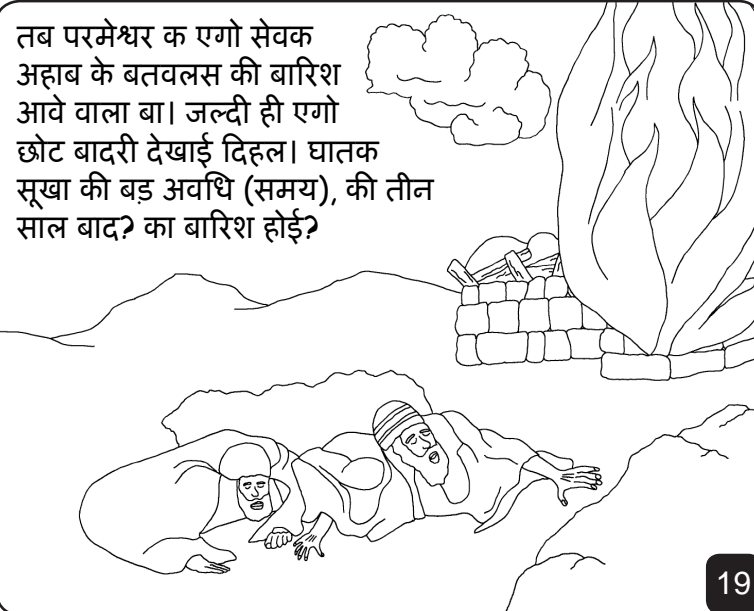 तब परमेश्वर क एगो सेवक
अहाब के बतवलस की बारिश
आवे वाला बा। जल्दी ही एगो
छोट बादरी देखाई दिहल। घातक
सूखा की बड़ अवधि (समय), की तीन
साल बाद? का बारिश होई?
19